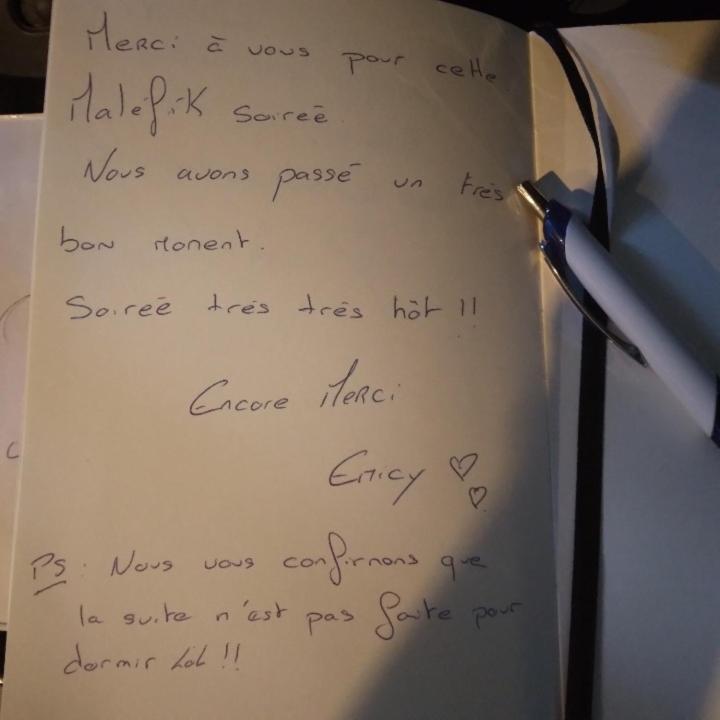 Merci à vous pour cette
Maléfik soireé
Nous avons passé un trés
bon moment.
Soireé trés trés hôt !!
Encore Merci
Emicy ♡♡
PS : Nous vous confirmons que
la suite n'est pas faite pour
dormir Lol !!